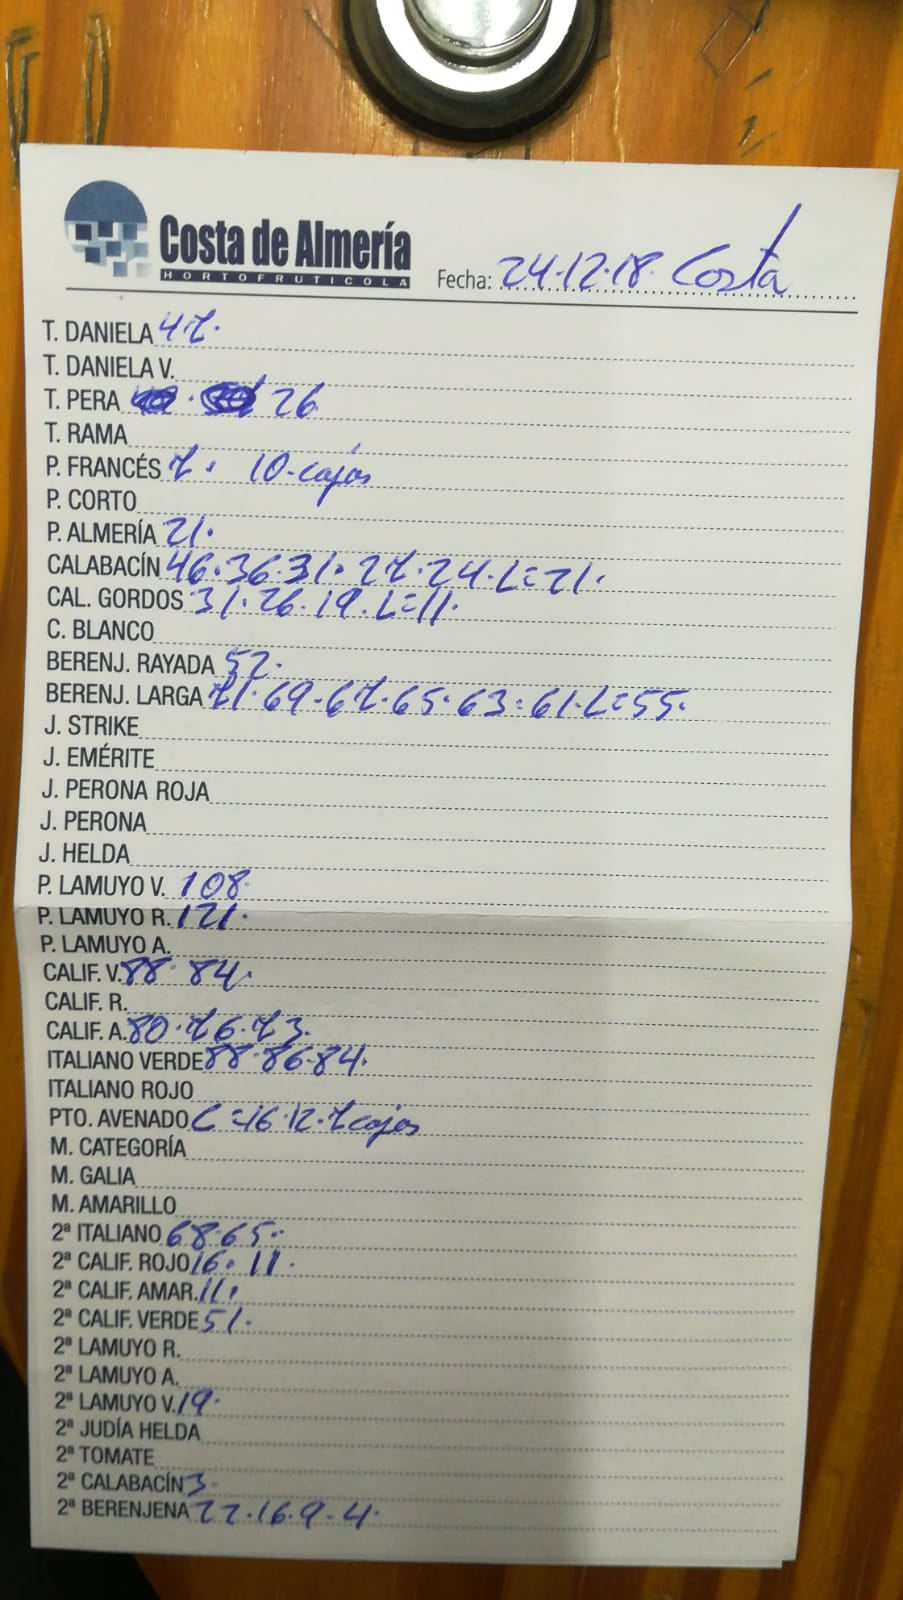 Costa de Almería
HORTOFRUTICOLA
Fecha: 24.12.18. Costa
T. DANIELA 47.
T. DANIELA V.
T. PERA 26
T. RAMA
P. FRANCÉS 7. 10-cajas
P. CORTO
P. ALMERÍA 21.
CALABACÍN 46.36.31.27.24.L=21.
CAL. GORDOS 31.26.19.L=11.
C. BLANCO
BERENJ. RAYADA 52.
BERENJ. LARGA 71.69.67.65.63.61.L=55.
J. STRIKE
J. EMÉRITE
J. PERONA ROJA
J. PERONA
J. HELDA
P. LAMUYO V. 108.
P. LAMUYO R. 121.
P. LAMUYO A.
CALIF. V. 88. 84.
CALIF. R.
CALIF. A. 80.76.73.
ITALIANO VERDE 88.86.84.
ITALIANO ROJO
PTO. AVENADO C=16.12.7 cajas
M. CATEGORÍA
M. GALIA
M. AMARILLO
2ª ITALIANO 68.65.
2ª CALIF. ROJO 16. 11.
2ª CALIF. AMAR. 11.
2ª CALIF. VERDE 51.
2ª LAMUYO R.
2ª LAMUYO A.
2ª LAMUYO V. 19.
2ª JUDÍA HELDA
2ª TOMATE
2ª CALABACÍN 3.
2ª BERENJENA 22.16.9.4.